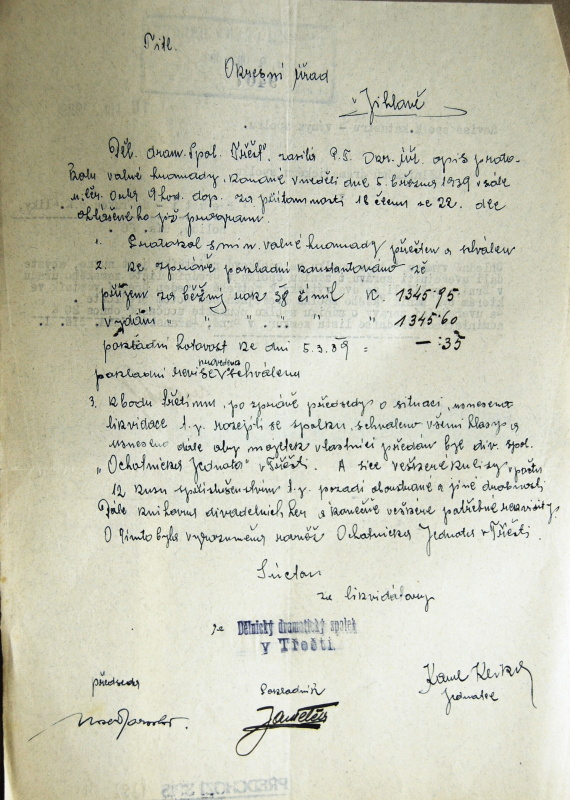 Titl.
Okresní úřad
v Jihlavě
Děl. dram. spol. Třešť. zasílá P.T. Okr. úř. opis proto-
kolu valné hromady, konané v neděli dne 5. března 1939 v sále
u 9 hod. dop. za přítomnosti 18 členů ze 22. dle
ohlášeného již programu.
1. Protokol s min. valné hromady přečten a schválen
2. ke zprávě pokladní konstatováno že
příjem za běžný rok 38 činil Kč. 1345·95
vydání " " " " " 1345·60
pokladní hotovost ke dni 5.3.39 = —·35
pokladní revise provedena schválena
3. K bodu třetímu, po zprávě předsedy o situaci, usneseno
likvidace t.j. rozejíti se spolku, schváleno všemi hlasy a
usneseno dále aby majetek vlastnící předán byl div. spol.
„Ochotnická Jednota" v Třešti. A sice veškeré kulisy v počtu
12 kusů s příslušenstvím t.j. pozadí oboustrané a jiné drobnosti
Dále knihovna divadelních her a konečně veškeré potřebné rekvisity.
O tímto byla vyrozuměna rovněž Ochotnická Jednota v Třešti.
S úctou
za likvidátory
za Dělnický dramatický spolek
v Třešti
předseda
Pokladník
Jednatel
PŘEDCHOZÍ